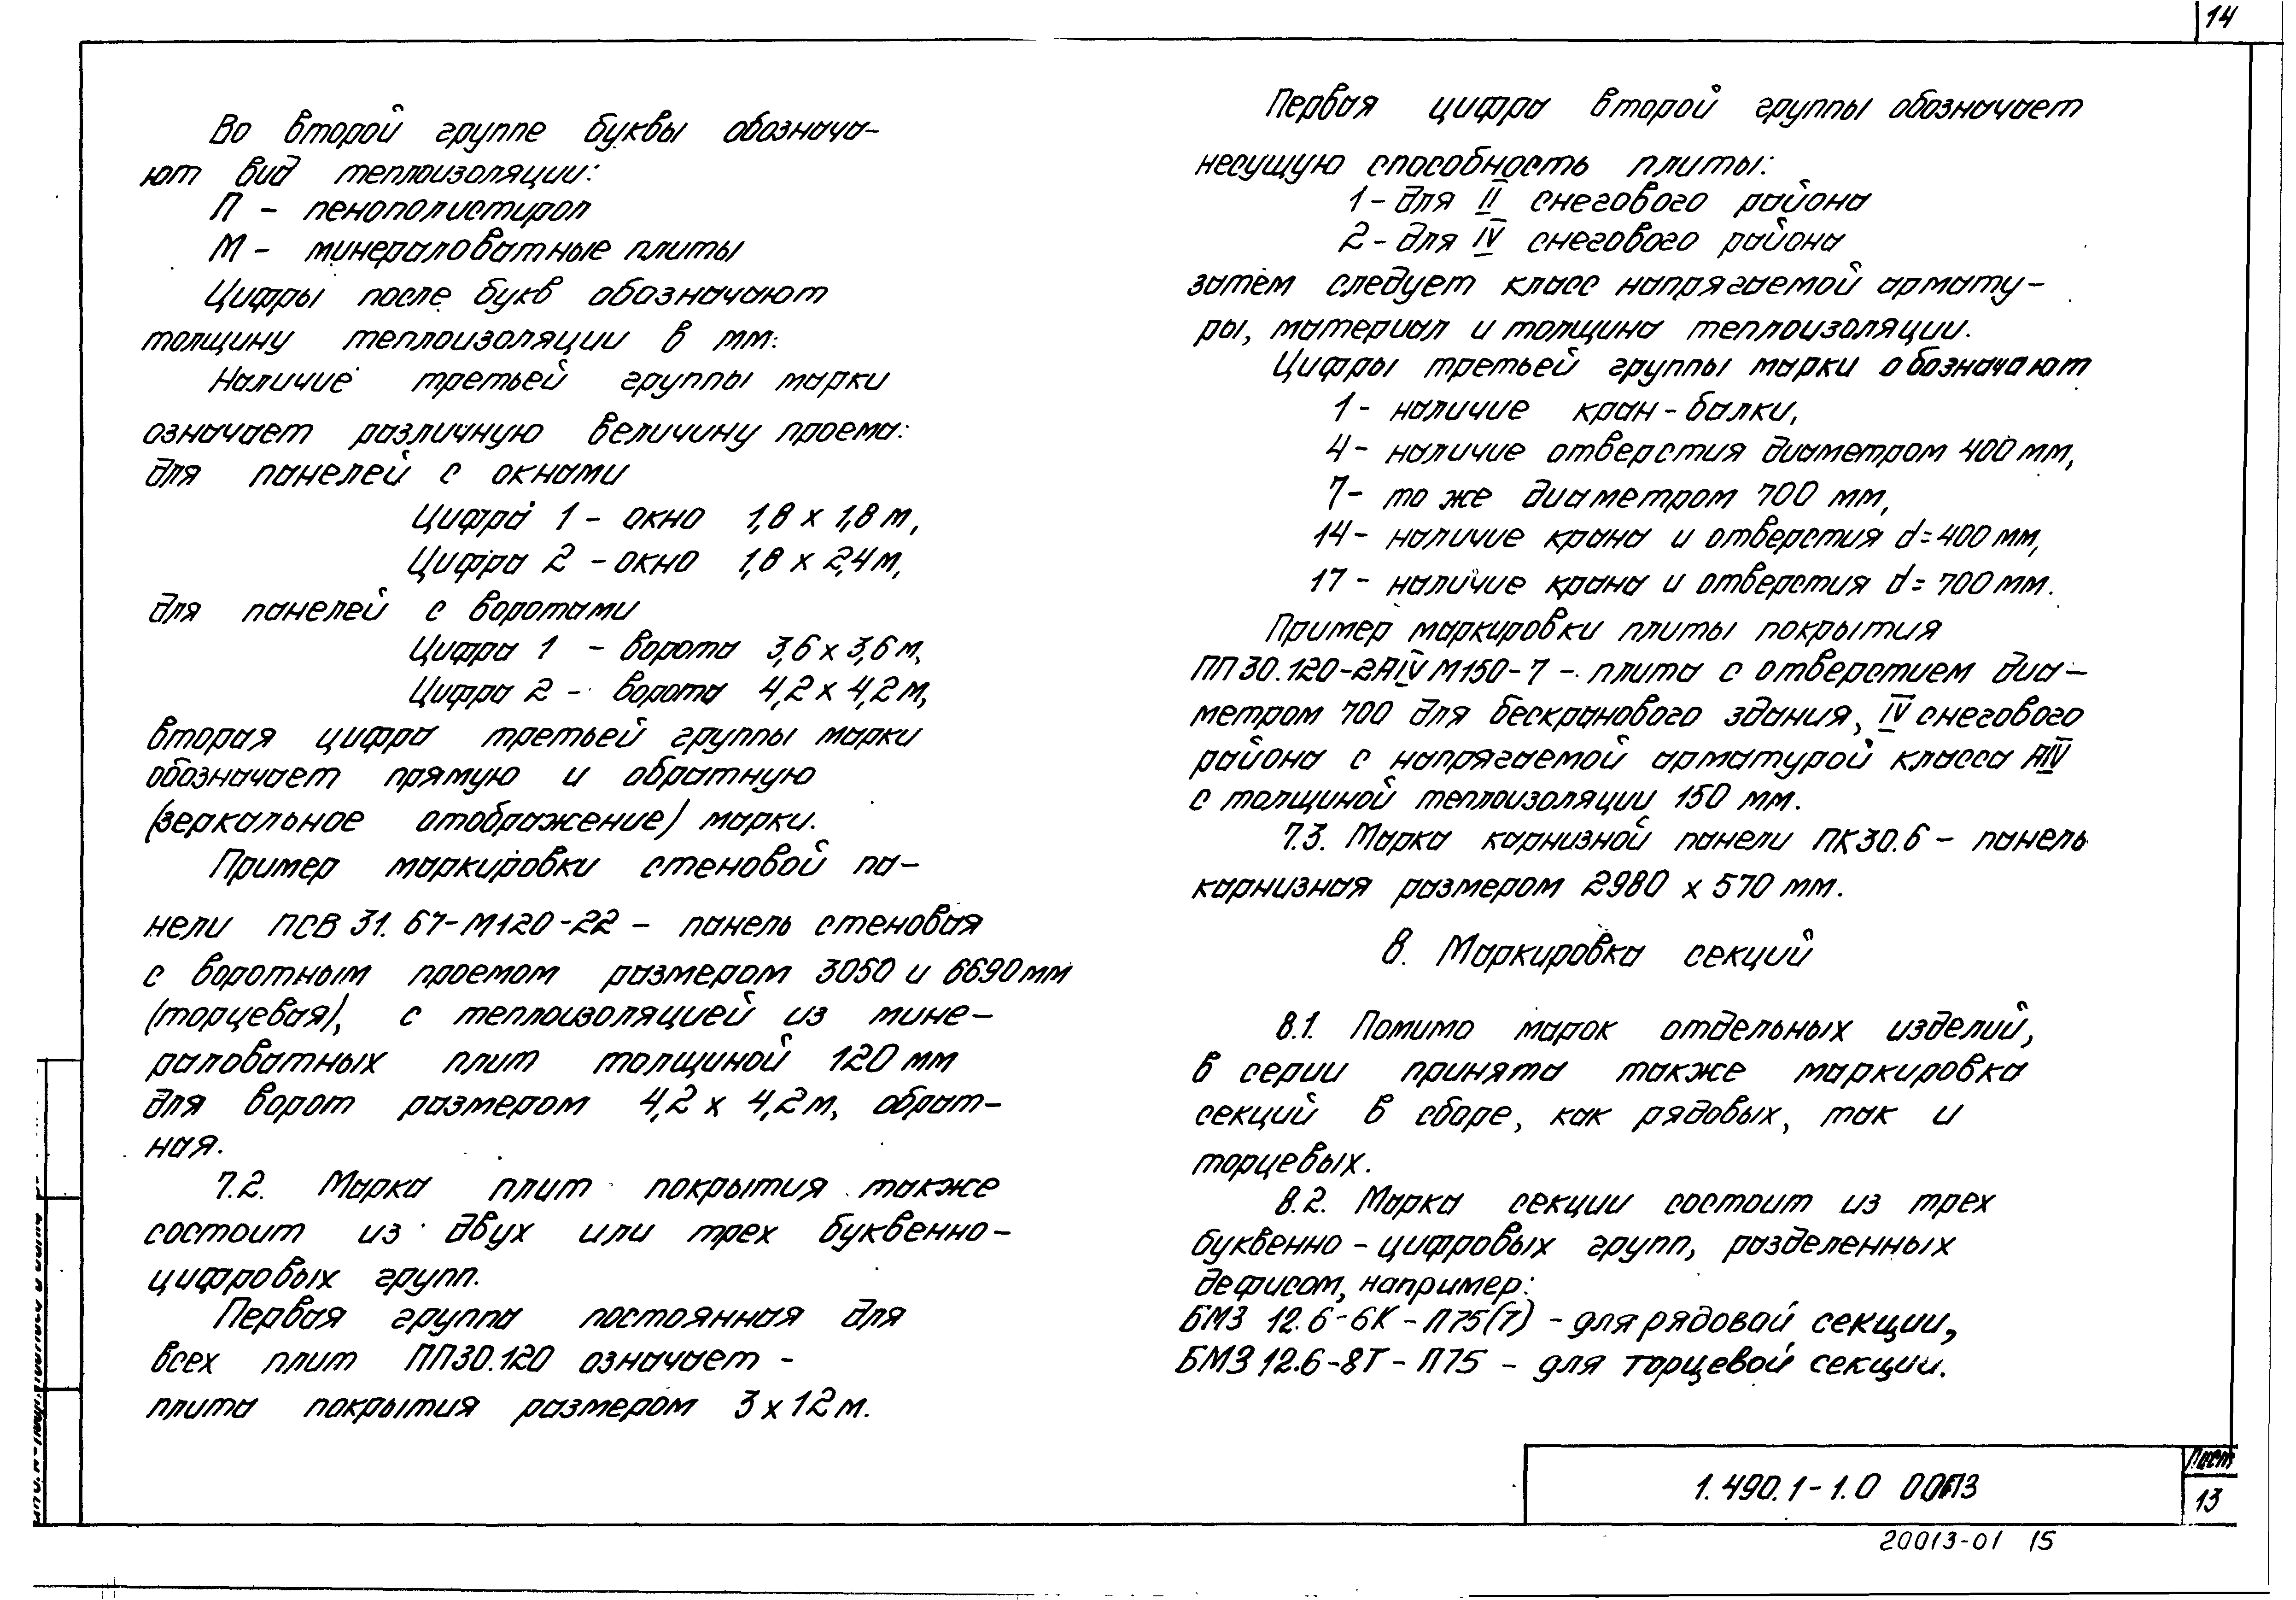 14
Во второй группе буквы обознача-
ют вид теплоизоляции:
П - пенополистирол
М - минераловатные плиты
Цифры после букв обозначают
толщину теплоизоляции в мм.
Наличие третьей группы марки
означает различную величину проема:
для панелей с окнами
Цифра 1 - окно 1,8 х 1,8 м,
Цифра 2 - окно 1,8 х 2,4 м,
для панелей с воротами
Цифра 1 - ворота 3,6 х 3,6 м,
Цифра 2 - ворота 4,2 х 4,2 м,
вторая цифра третьей группы марки
обозначает прямую и обратную
(зеркальное отображение) марки.
Пример маркировки стеновой па-
нели ПСВ 31. 67-М120-22 - панель стеновая
с воротным проемом размером 3050 и 6690 мм
(торцевая), с теплоизоляцией из мине-
раловатных плит толщиной 120 мм
для ворот размером 4,2 х 4,2 м, обрат-
ная.
7.2. Марка плит покрытия также
состоит из двух или трех буквенно-
цифровых групп.
Первая группа постоянная для
всех плит ПП30.120 означает -
плита покрытия размером 3 х 12 м.
Первая цифра второй группы обозначает
несущую способность плиты:
1 - для II снегового района
2 - для IV снегового района
затем следует класс напрягаемой армату-
ры, материал и толщина теплоизоляции.
Цифры третьей группы марки обозначают
1 - наличие кран-балки,
4 - наличие отверстия диаметром 400 мм,
7 - то же диаметром 700 мм,
14 - наличие крана и отверстия d=400 мм,
17 - наличие крана и отверстия d=700 мм.
Пример маркировки плиты покрытия
ПП 30.120-2АIV М150-7 - плита с отверстием диа-
метром 700 для бескранового здания, IV снегового
района с напрягаемой арматурой класса АIV
с толщиной теплоизоляции 150 мм.
7.3. Марка карнизной панели ПК30.6 - панель
карнизная размером 2980 х 570 мм.
8. Маркировка секций
8.1. Помимо марок отдельных изделий,
в серии принята также маркировка
секций в сборе, как рядовых, так и
торцевых.
8.2. Марка секции состоит из трех
буквенно-цифровых групп, разделенных
дефисом, например:
БМЗ 12.6-6К-П75(7) - для рядовой секции,
БМЗ 12.6-8Т-П75 - для торцевой секции.
1.490.1-1.0 00ПЗ
Лист
13
20013-01 15